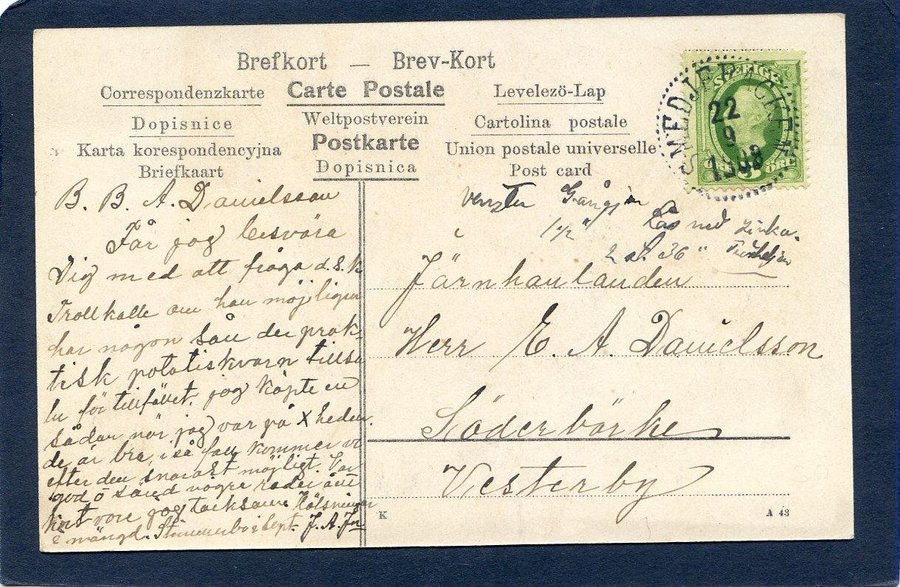 Brefkort — Brev-Kort
Correspondenzkarte Carte Postale Levelezö-Lap
Dopisnice Weltpostverein Cartolina postale
Karta korespondencyjna Postkarte Union postale universelle
Briefkaart Dopisnica Post card
SVERIGE
SMEDJEBACKEN
22
9
1908
B. B. A. Danielsson
Får jog besvära
Dig med att fråga d.s.k
Trollkalle om han möjligen
har någon sån der prak-
tisk potatiskvarn tillsa-
lu för tillfället. jog köpte en
sådan när jog var på X heden.
de är bra, i så fall kommer vi
efter den snarast möjligt. Var
god o sänd några rader om
kort vore jog tacksam. Hälsningar
i mängd. Sept. J. A.
Gångjern
1½" Lås med
2 st. 36"
Järnhanlanden
Herr E. A. Danielsson
Söderbärke
Vesterby
K
A 43